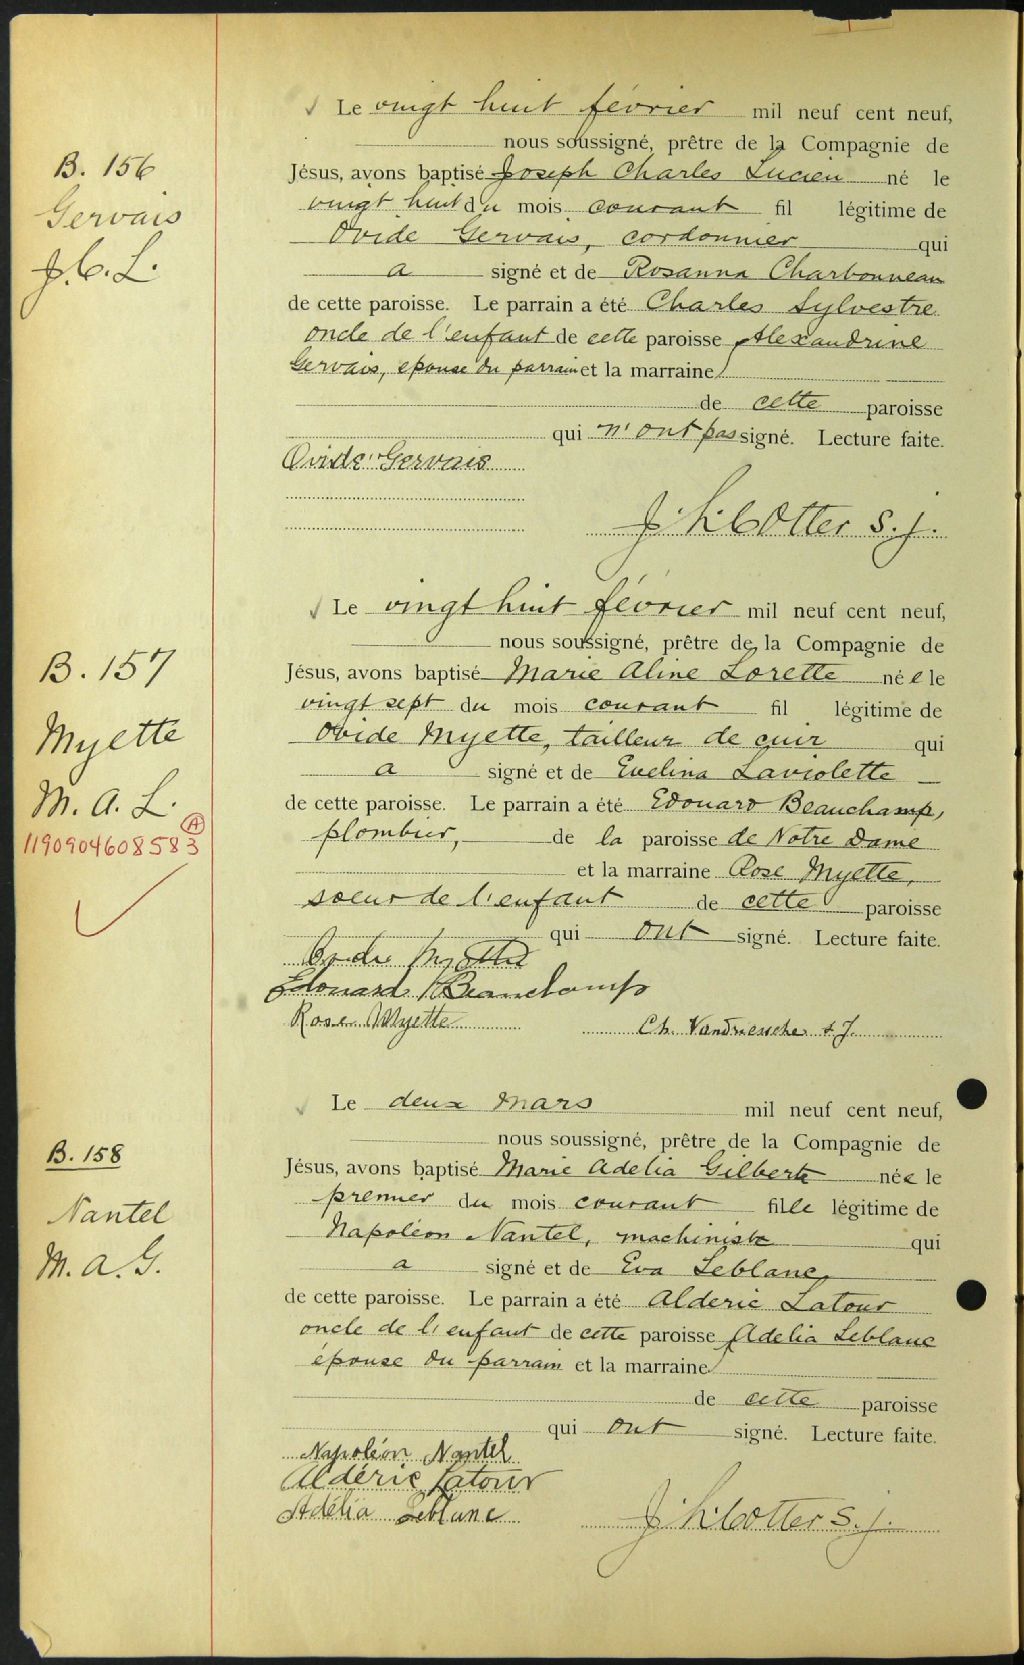 Le vingt huit février mil neuf cent neuf,
nous soussigné, prêtre de la Compagnie de
B. 156
Jésus, avons baptisé Joseph Charles Lucien né le
Gervais
vingt huit du mois courant fil légitime de
Ovide Gervais, cordonnier qui
J. C. L.
a signé et de Rosanna Charbonneau
de cette paroisse. Le parrain a été Charles Sylvestre
oncle de l'enfant de cette paroisse Alexandrine
Gervais, epouse du parrain et la marraine
de cette paroisse
qui n'ont pas signé. Lecture faite.
Ovide Gervais
J. H. Cotter s.j.
Le vingt huit février mil neuf cent neuf,
nous soussigné, prêtre de la Compagnie de
B. 157
Jésus, avons baptisé Marie Aline Lorette née le
vingt sept du mois courant fil légitime de
Myette
Ovide Myette, tailleur de cuir qui
a signé et de Evelina Laviolette
M. A. L.
de cette paroisse. Le parrain a été Edouard Beauchamp,
A
1190904608583
plombier, de la paroisse de Notre Dame
et la marraine Rose Myette,
soeur de l'enfant de cette paroisse
qui ont signé. Lecture faite.
Ovide Myette
Edouard Beauchamp
Rose Myette
Ch. Vandriessche s.j.
Le deux mars mil neuf cent neuf,
nous soussigné, prêtre de la Compagnie de
B. 158
Jésus, avons baptisé Marie Adelia Gilberte née le
Nantel
premier du mois courant fille légitime de
Napoléon Nantel, machiniste qui
M. A. G.
a signé et de Eva Leblanc
de cette paroisse. Le parrain a été Alderic Latour
oncle de l'enfant de cette paroisse Adelia Leblanc
épouse du parrain et la marraine
de cette paroisse
qui ont signé. Lecture faite.
Napoléon Nantel
Aldéric Latour
Adélia Leblanc
J. H. Cotter s.j.